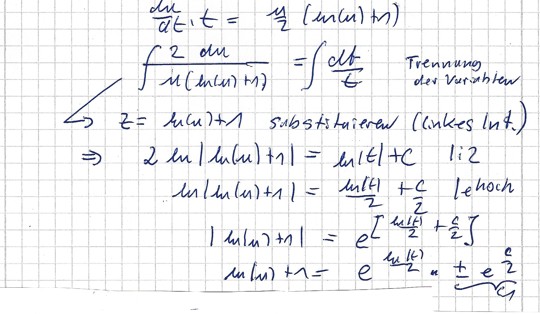 du/dt · t = u/2 (ln(u)+1)
∫ 2 du / u(ln(u)+1) = ∫ dt/t Trennung der Variablen
z = ln(u)+1 substituieren (linkes Int.)
⇒ 2 ln|ln(u)+1| = ln|t| + C |:2
ln|ln(u)+1| = ln|t|/2 + C/2 |e hoch
|ln(u)+1| = e^[ln|t|/2 + C/2]
ln(u)+1 = e^(ln|t|/2) · ± e^(C/2)
C1